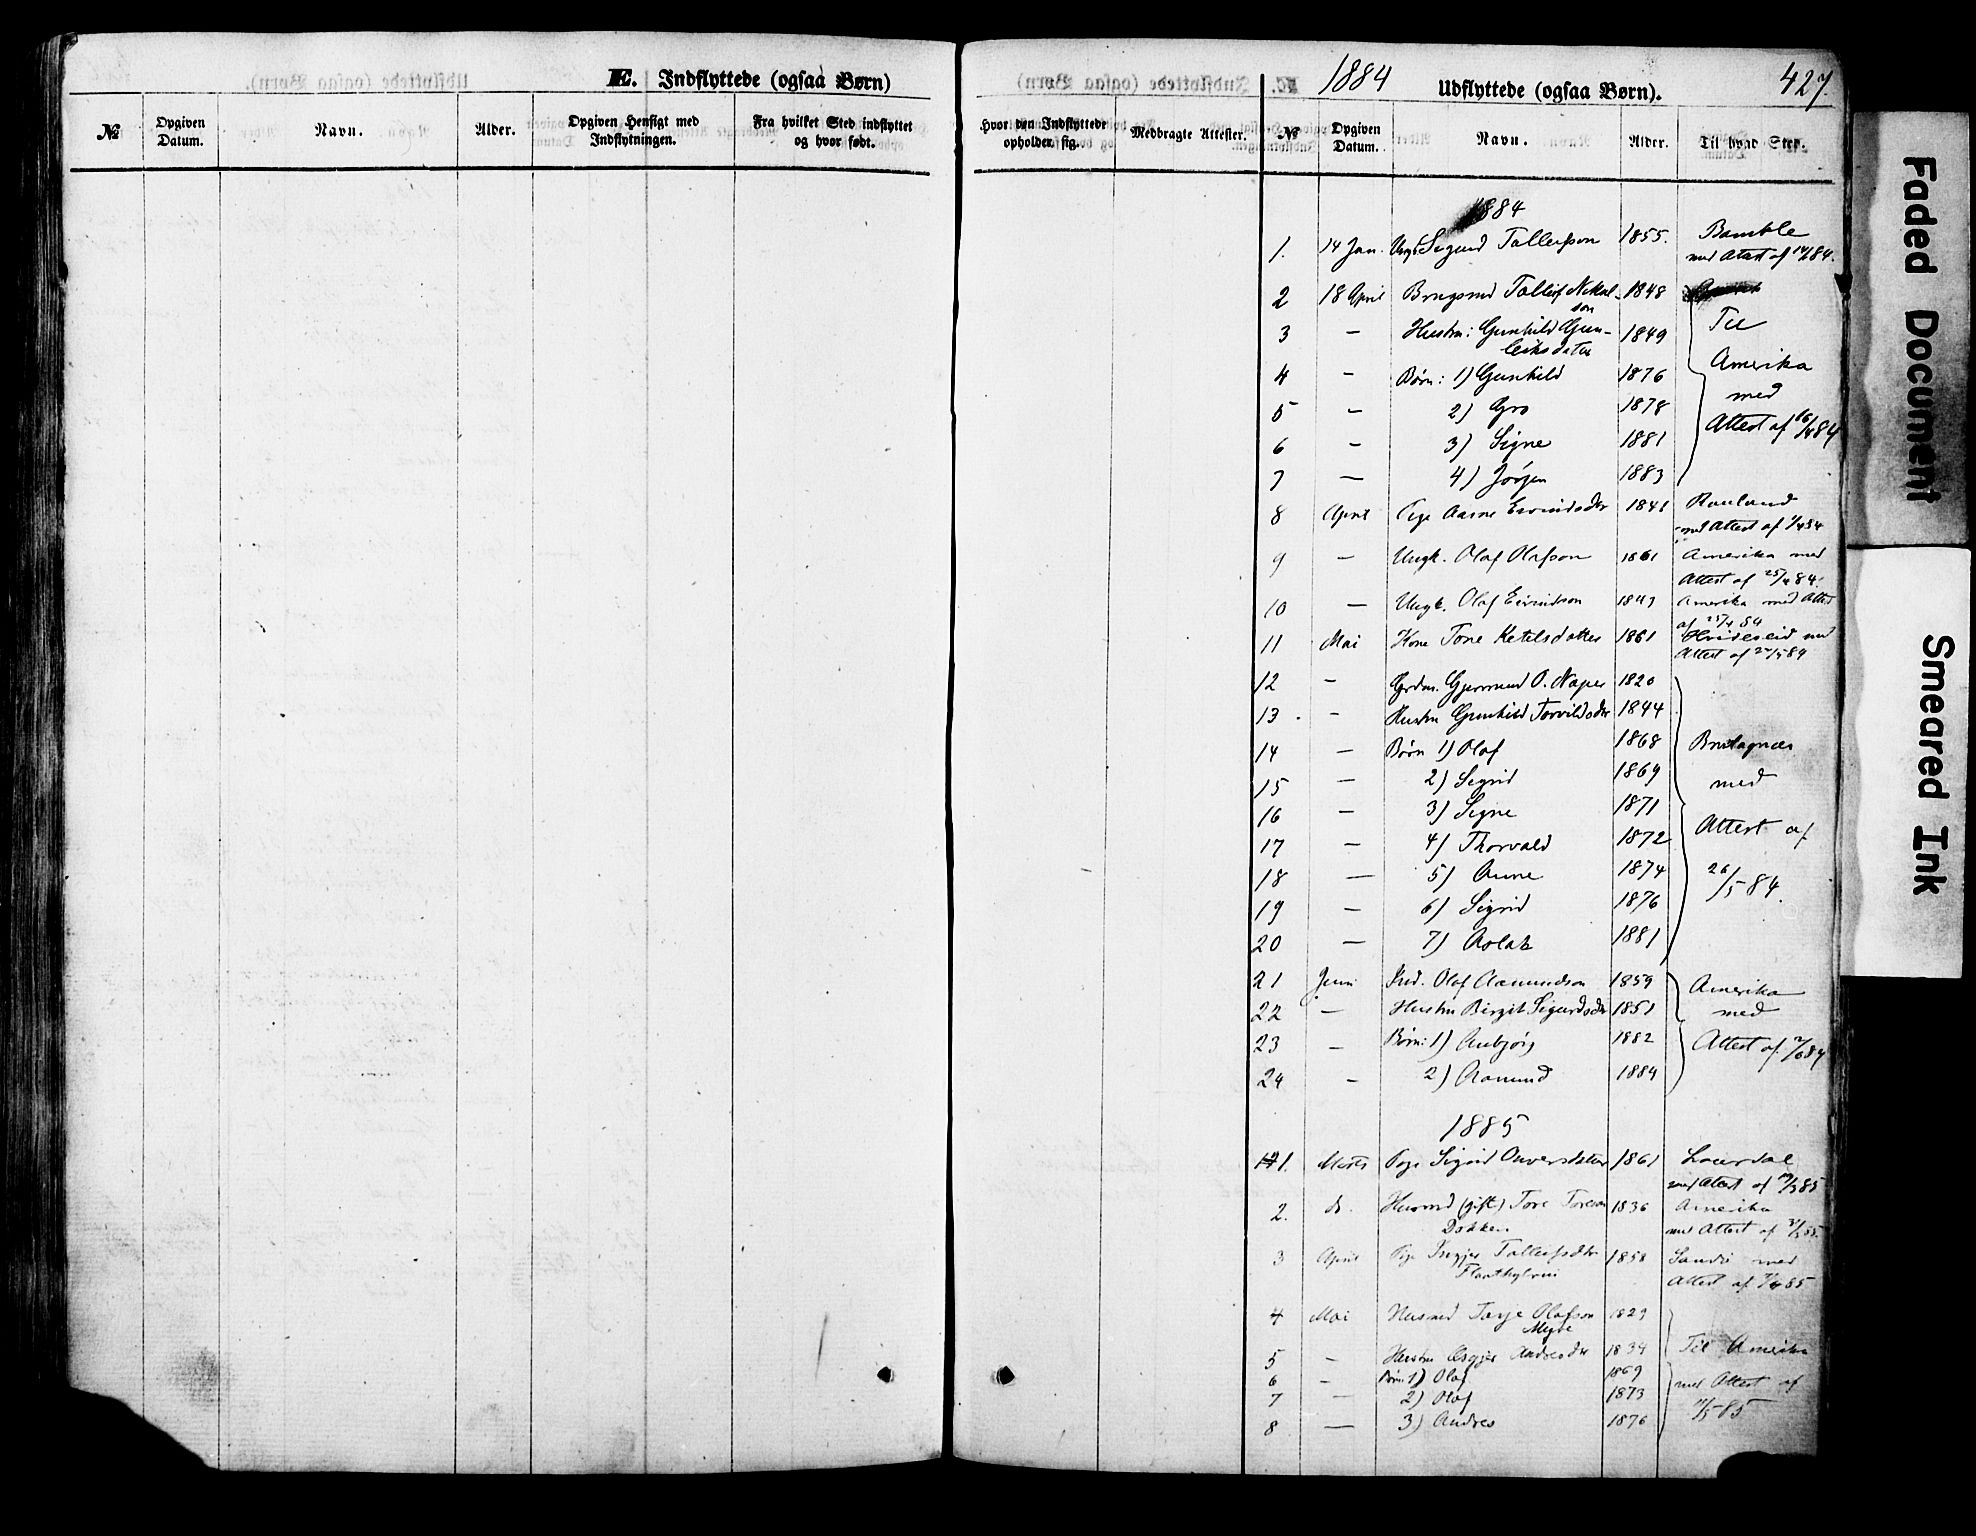 E. Indflyttede (ogsaa Børn)
№ Opgiven Datum. Navn. Alder. Opgiven Hensigt med Indflytningen. Fra hvilket Sted indflyttet og hvor født.
Hvor den Indflyttede opholder sig. Medbragte Attester.
1884 Udflyttede (ogsaa Børn). 427.
№ Opgiven Datum. Navn. Alder. Til hvad Sted.
1884
1. 14 Jan. Ungk. Sigurd Tollefson 1855. Bamble
med Attest af 14/1 84.
2 18 April Brugsmd Tollef Nekol- 1848
son
3 — Hustru: Gunhild Gun- 1849 Til
leiksdatter
4 — Børn: 1) Gunhild 1876 Amerika
5 — 2) Gro 1878 med
6 — 3) Signe 1881 Attest af 18/4 84
7 — 4) Jörgen 1883
8 April Pige Aasne Eivindsdtr 1841 Rauland
med Attest af 84
9 — Ungk. Olaf Olafson 1861 Amerika med
Attest af 25/4 84.
10 — Ungk. Olaf Eivindson 1843 Amerika med Attest
af 25/4 84
11 Mai Kone Tone Ketelsdatter 1861 Hvideseid med
Attest af 84
12 — Grdm. Gjermund O. Naper 1820
13. — Hustru Gunhild Torvildsdtr 1844
14 — Børn 1) Olaf 1868
15 — 2) Sigrid 1869 med
16 — 3) Signe 1871
17 — 4) Thorvald 1872 Attest af
18 — 5) Anne 1874 26/5 84.
19 — 6) Sigrid 1876
20 — 7) Aslak 1881
21 Juni Ind. Olaf Aamundson 1859 Amerika
22 — Hustru Birgit Sigurdsdtr 1851 med
23 — Børn: 1) Anbjørg 1882 Attest af 2/6 84
24 — 2) Aamund 1884
1885
1. Marts Pige Sigrid Anversdatter 1861 Laurdal
med Attest af 85
2. do. Husmd (gift) Tore Toreson 1836 Amerika
Dokken. med Attest af 85.
3 April Pige Ingjer Tollefsdtr 1858 Sande med
Attest af 85
4 Mai Husmd Terje Olafson 1829
Myre
5 — Hustru Andresdtr 1834 Til Amerika
6 — Børn 1) Olaf 1869 med Attest af
7 — 2) Olaf 1873 85
8 — 3) Andres 1876
Faded Document
Smeared Ink